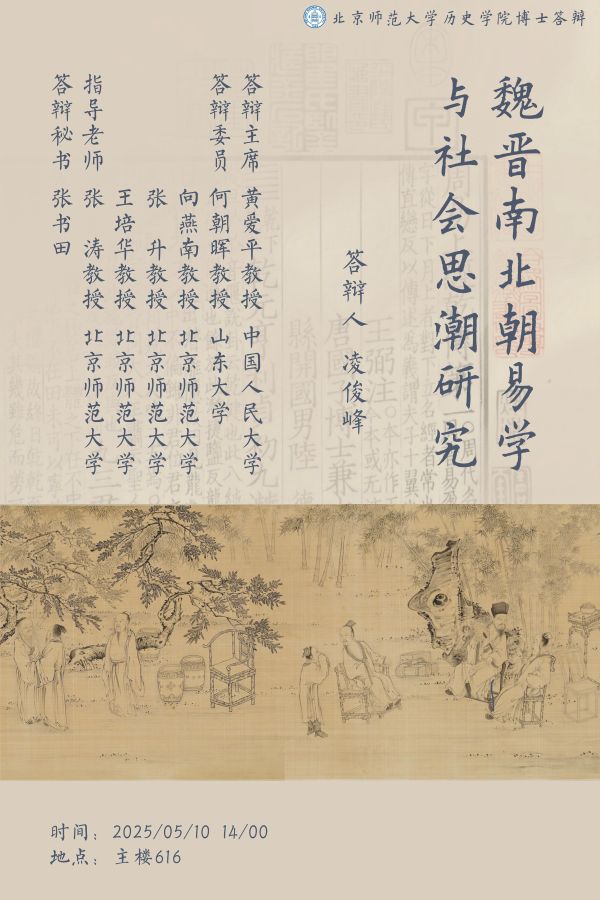 北京师范大学历史学院博士答辩
魏晋南北朝易学
与社会思潮研究
答辩人 凌俊峰
答辩主席 黄爱平教授 中国人民大学
答辩委员 何朝晖教授 山东大学
向燕南教授 北京师范大学
张 升教授 北京师范大学
王培华教授 北京师范大学
指导老师 张 涛教授 北京师范大学
答辩秘书 张书田
时间：2025/05/10 14/00
地点：主楼616